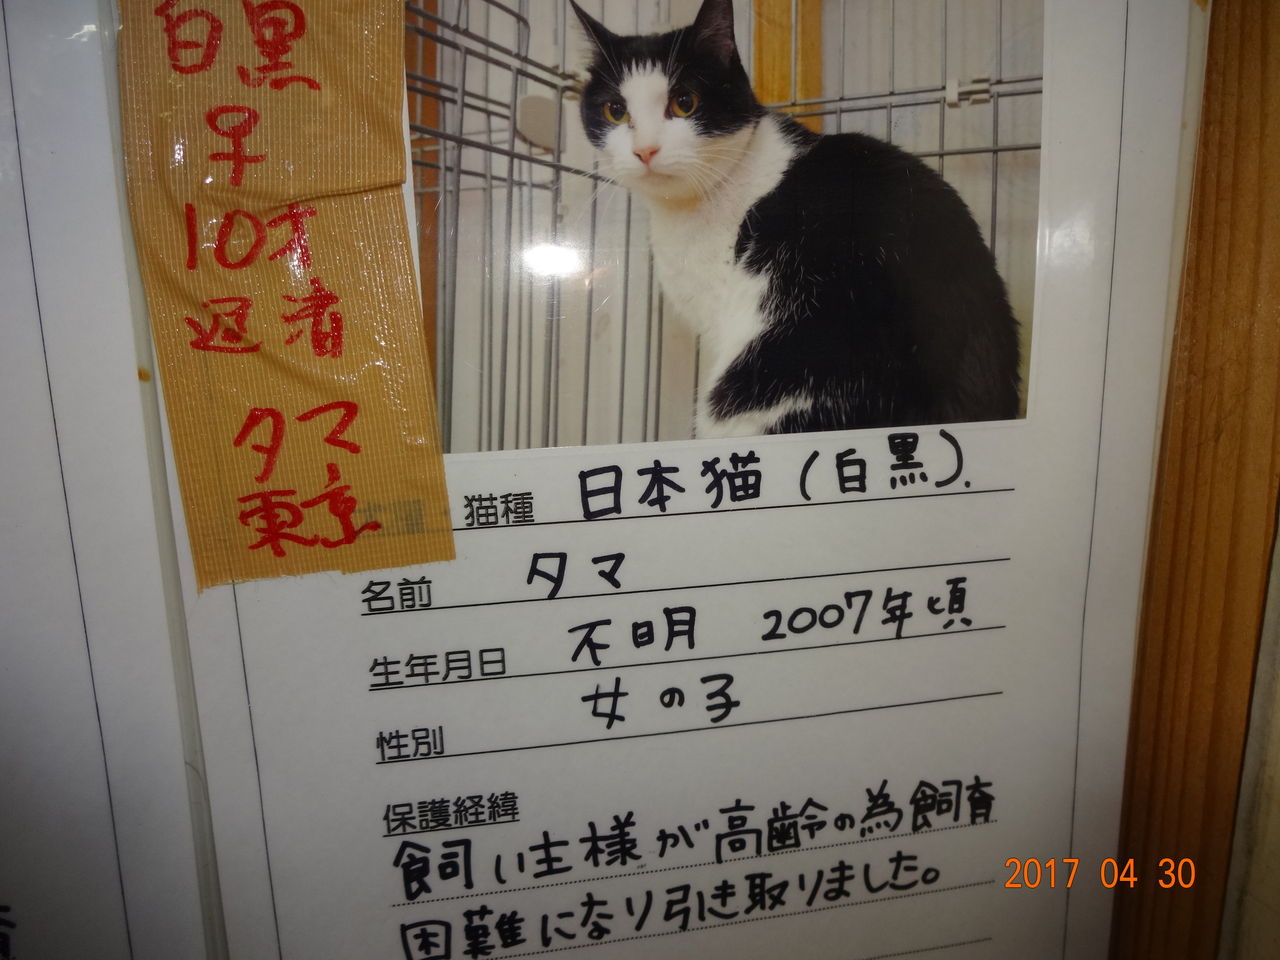 白黒
早
10才
避済
タマ
東京
猫種 日本猫(白黒).
名前 タマ
生年月日 不明 2007年頃
性別 女の子
保護経緯
飼い主様が高齢の為飼育
困難になり引き取りました。
2017 04 30